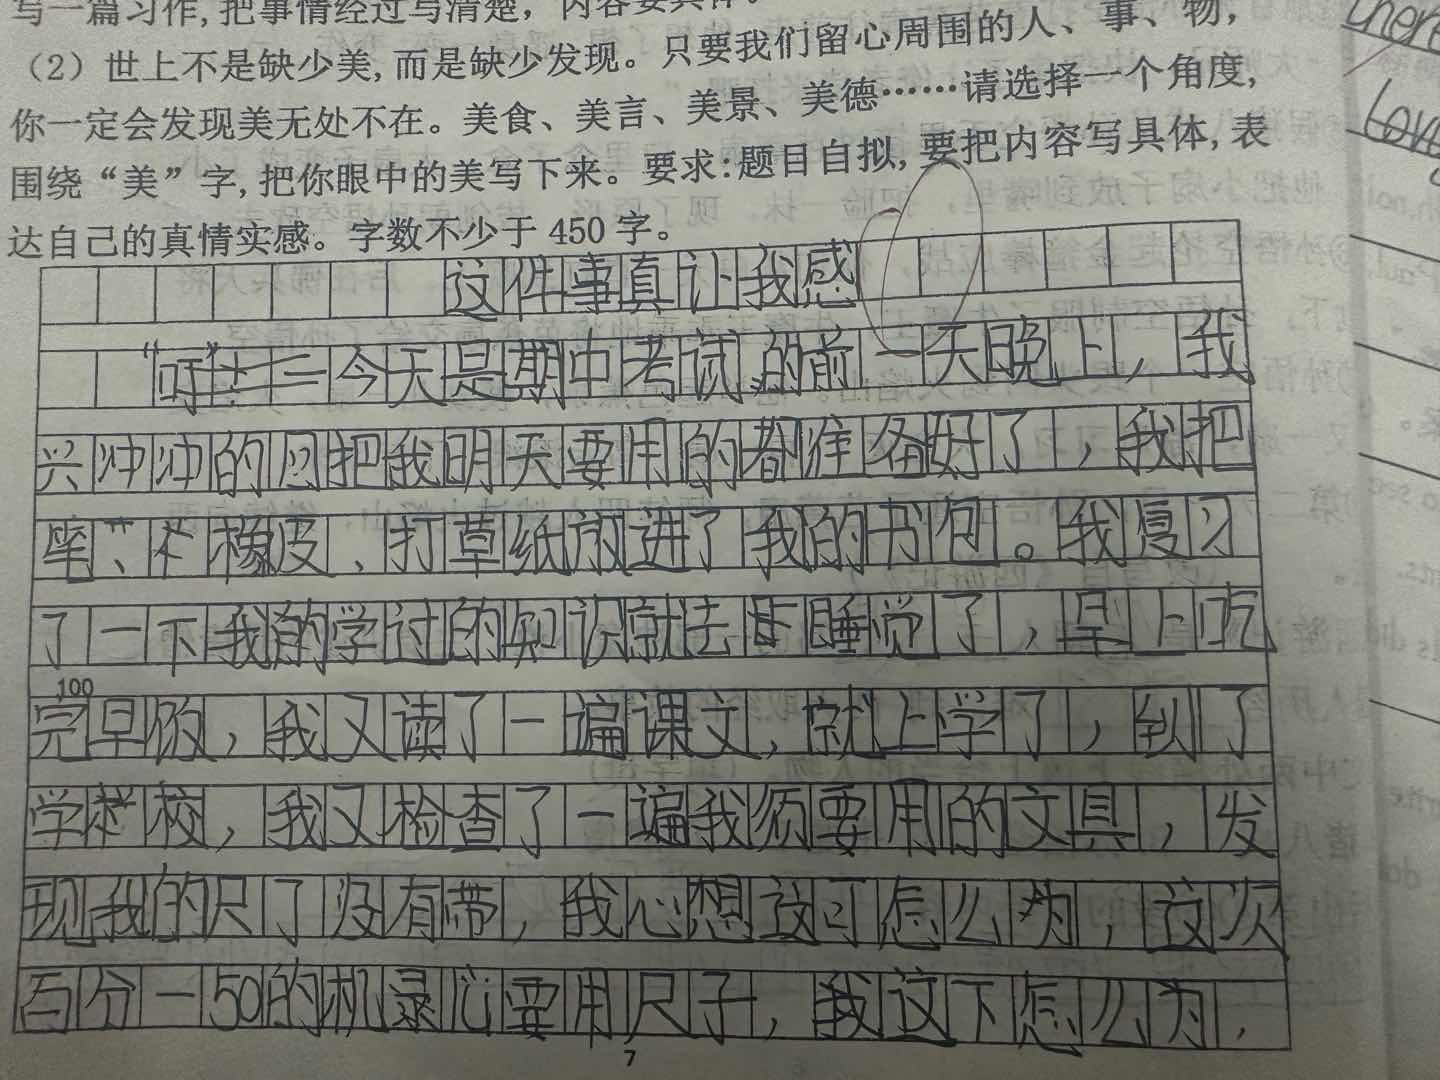 写一篇习作,把事情经过写清楚，内容要具体。
（2）世上不是缺少美,而是缺少发现。只要我们留心周围的人、事、物,
你一定会发现美无处不在。美食、美言、美景、美德……请选择一个角度,
围绕“美”字,把你眼中的美写下来。要求:题目自拟,要把内容写具体,表
达自己的真情实感。字数不少于 450 字。
这件事真让我感
今天是期中考试的前一天晚上，我
兴冲冲的把我明天要用的都准备好了，我把
橡皮、打草纸放进了我的书包。我复习
了一下我的学过的知识就去睡觉了，早上吃
100
完早饭，我又读了一遍课文，就上学了，到了
学校，我又检查了一遍我须要用的文具，发
现我的尺了没有带，我心想这可怎么为，这次
百分一50的机要用尺子，我这下怎么为，
7